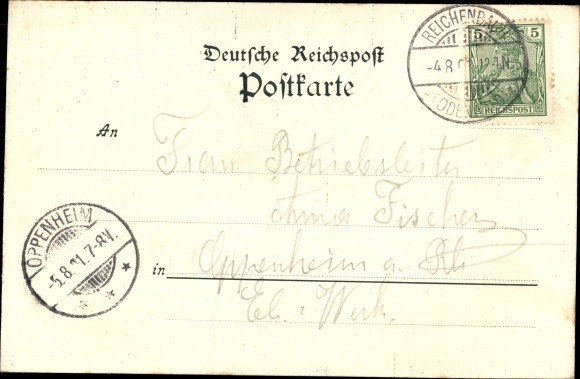 Deutsche Reichspost
Postkarte
REICHENBACH
-4.8.0 12-1N.
(ODE
5 5
REICHSPOST
An Frau Betriebsleiter
Anna Fischer
in Oppenheim a. Rh.
El. Werk.
OPPENHEIM
-5.8.01.7-8V.